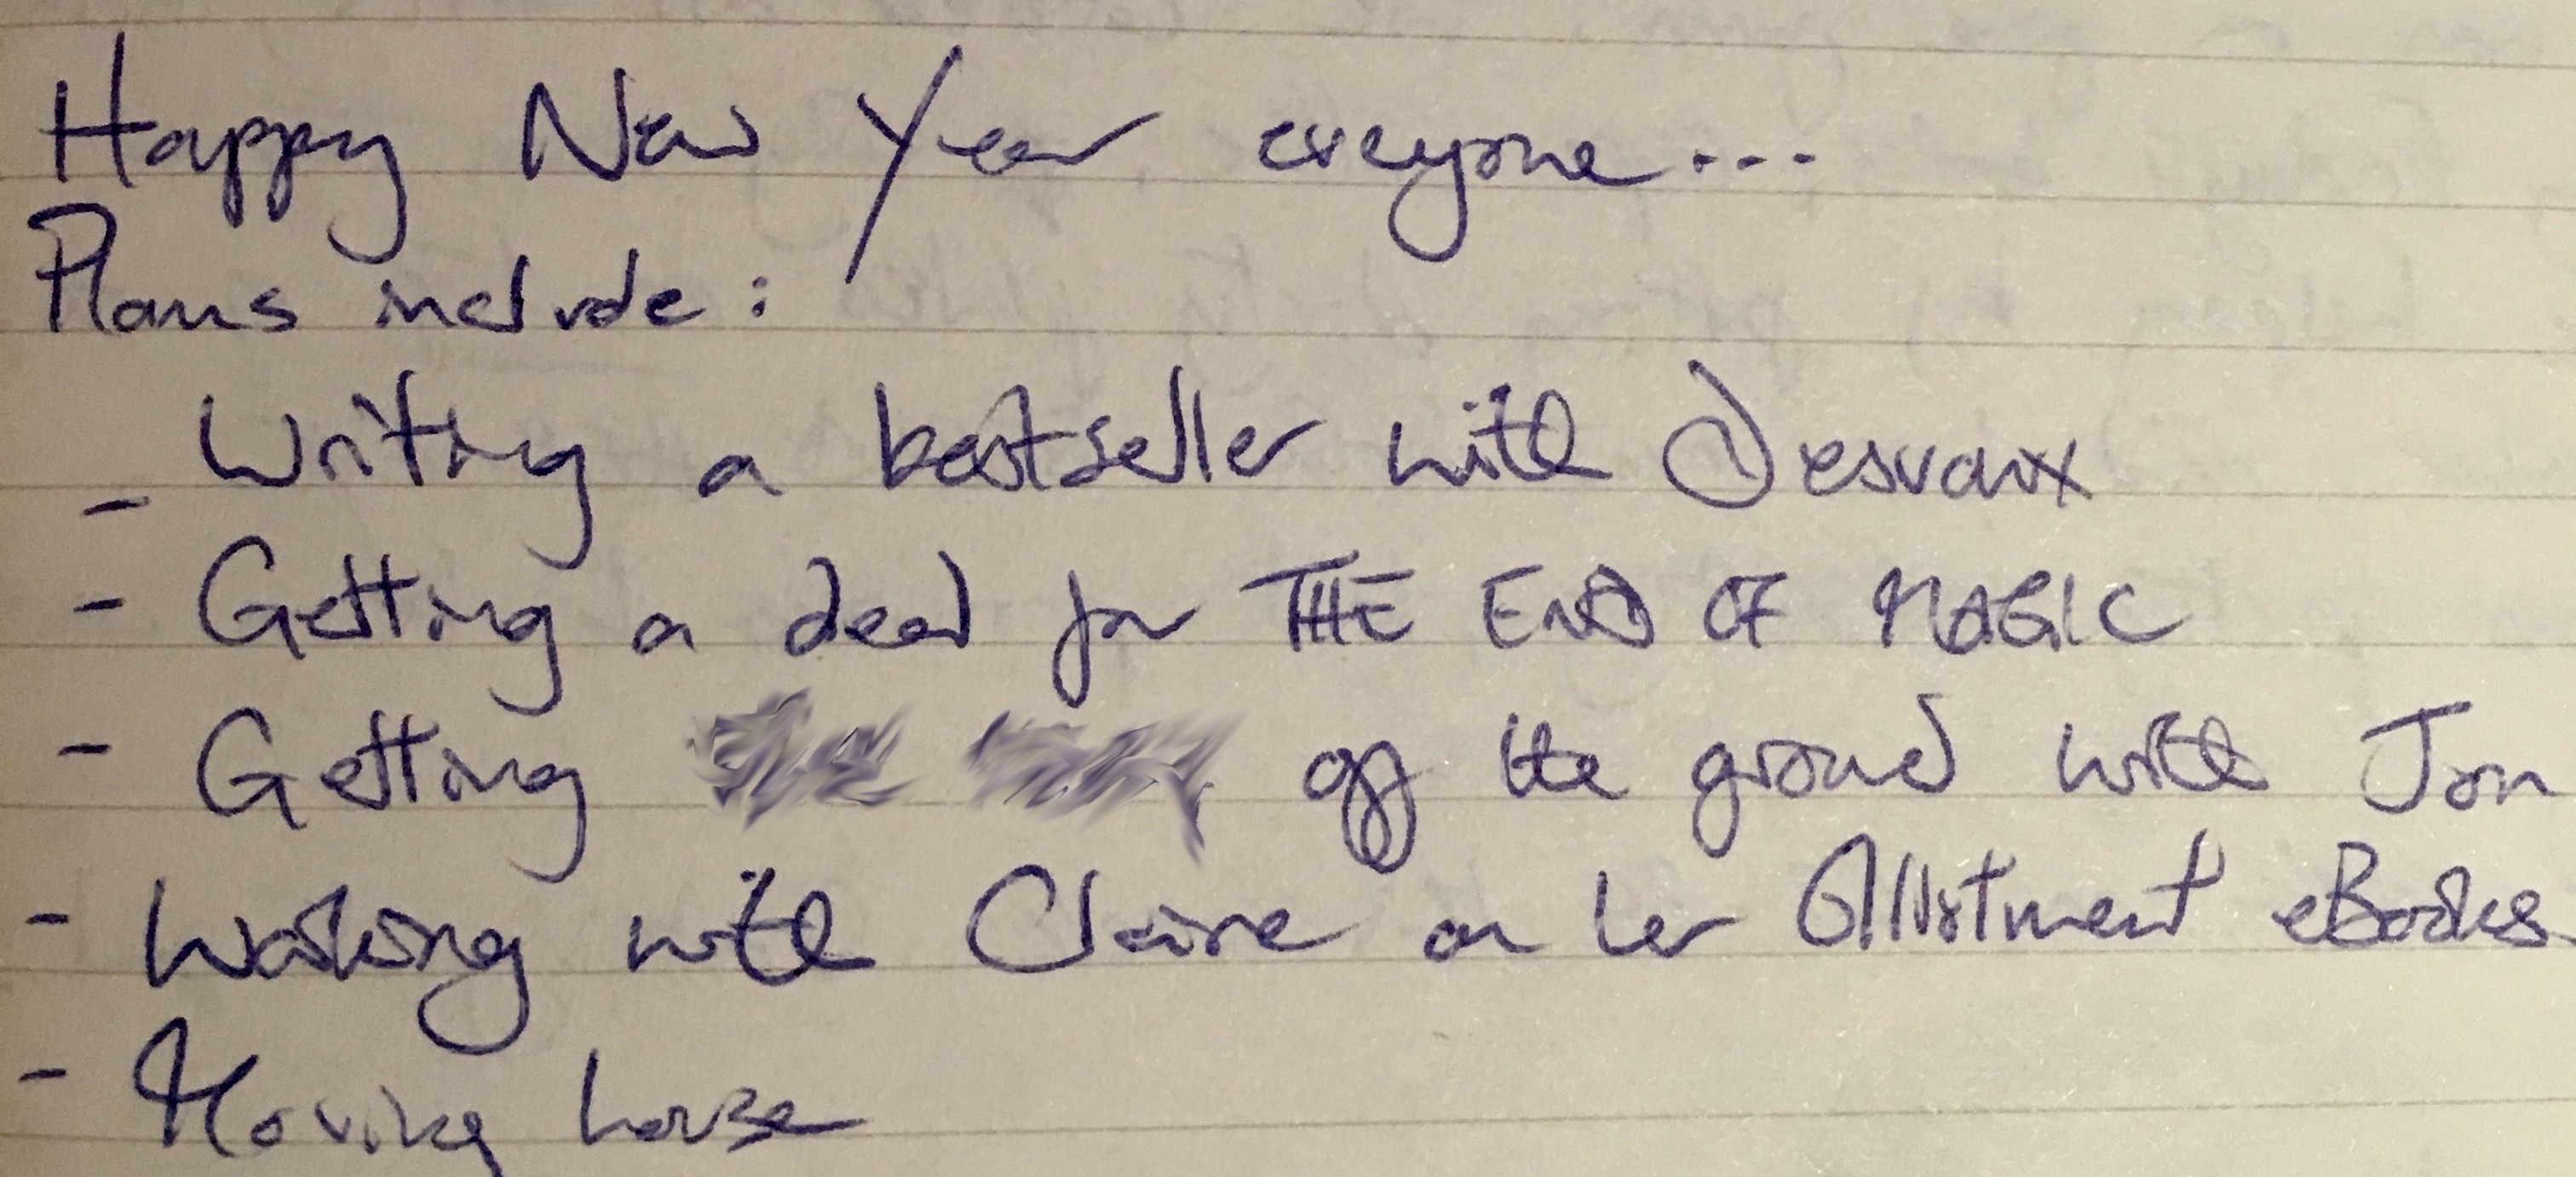 Happy New Year everyone...
Plans include:
- Writing a bestseller with Desvaux
- Getting a deal for THE END OF MAGIC
- Getting off the ground with Jon
- Working with Claire on her Allotment eBooks
- Moving house